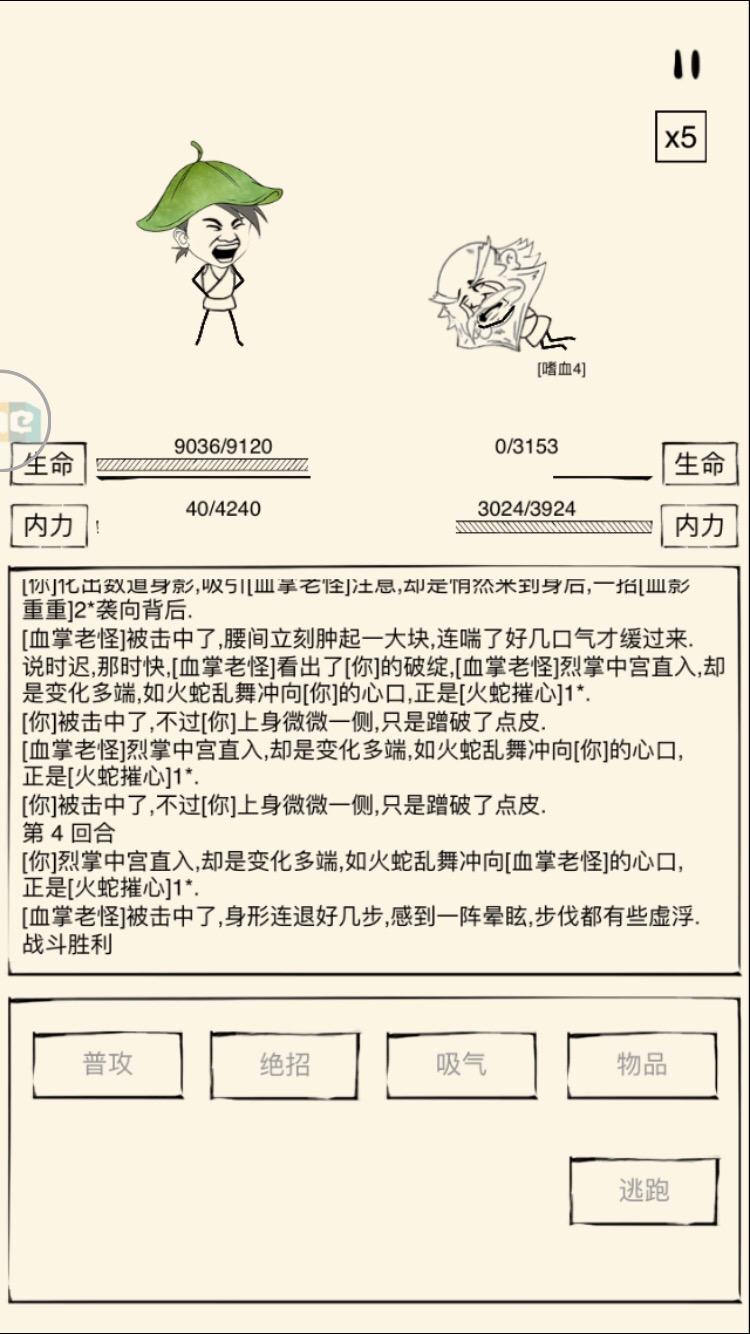 x5
[嗜血4]
生命
9036/9120
0/3153
生命
内力
40/4240
3024/3924
内力
[你]化出数道身影,吸引[血掌老怪]注意,却是悄然来到身后,一招[血影
重重]2*袭向背后.
[血掌老怪]被击中了,腰间立刻肿起一大块,连喘了好几口气才缓过来.
说时迟,那时快,[血掌老怪]看出了[你]的破绽,[血掌老怪]烈掌中宫直入,却
是变化多端,如火蛇乱舞冲向[你]的心口,正是[火蛇摧心]1*.
[你]被击中了,不过[你]上身微微一侧,只是蹭破了点皮.
[血掌老怪]烈掌中宫直入,却是变化多端,如火蛇乱舞冲向[你]的心口,
正是[火蛇摧心]1*.
[你]被击中了,不过[你]上身微微一侧,只是蹭破了点皮.
第 4 回合
[你]烈掌中宫直入,却是变化多端,如火蛇乱舞冲向[血掌老怪]的心口,
正是[火蛇摧心]1*.
[血掌老怪]被击中了,身形连退好几步,感到一阵晕眩,步伐都有些虚浮.
战斗胜利
普攻
绝招
吸气
物品
逃跑